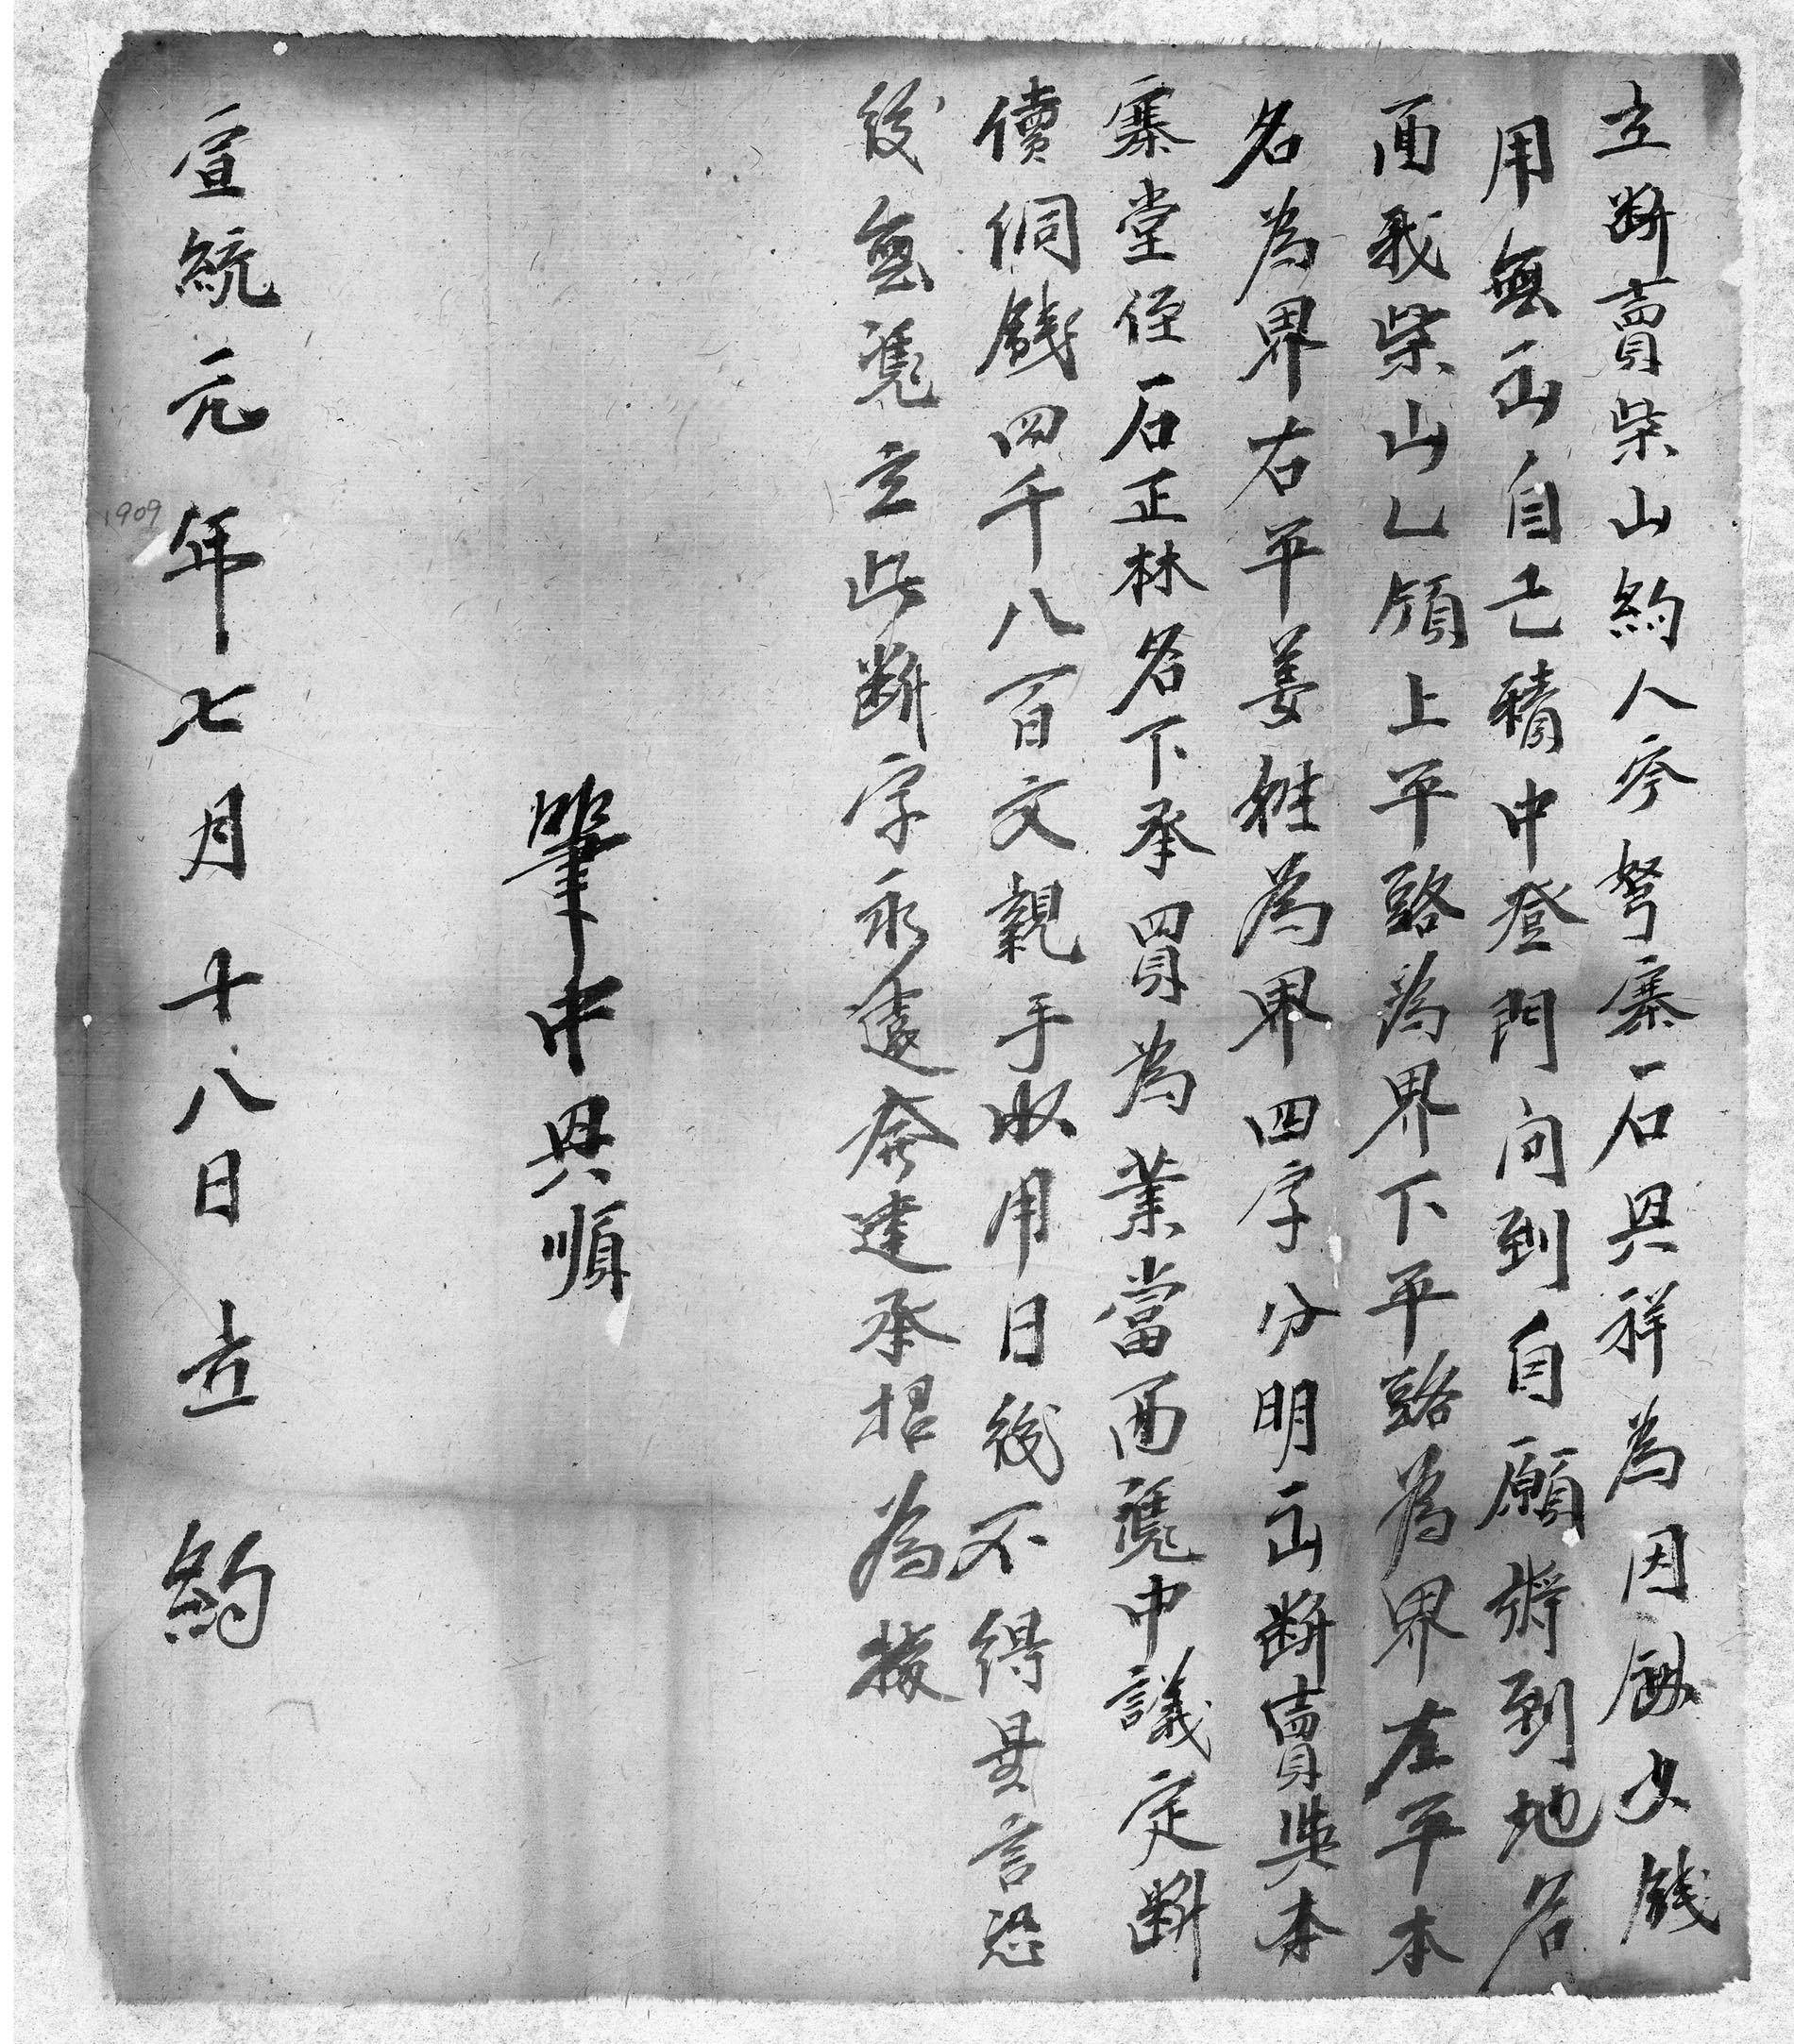 立断賣柴山約人岑拏寨石興祥為因缺少錢
用無出自己積中登門问到自願將到地名
面我柴山乚領上平路為界下平路為界左平本
名為界右平姜姓為界四字分明出断賣與本
寨堂侄石正林名下承買為業當面凴中議定断
價侗錢四千八百文親手收用日後不得異言恐
後無凴立此断字永遠發達承招為據
筆中興順
宣統元年七月十八日立約
1909